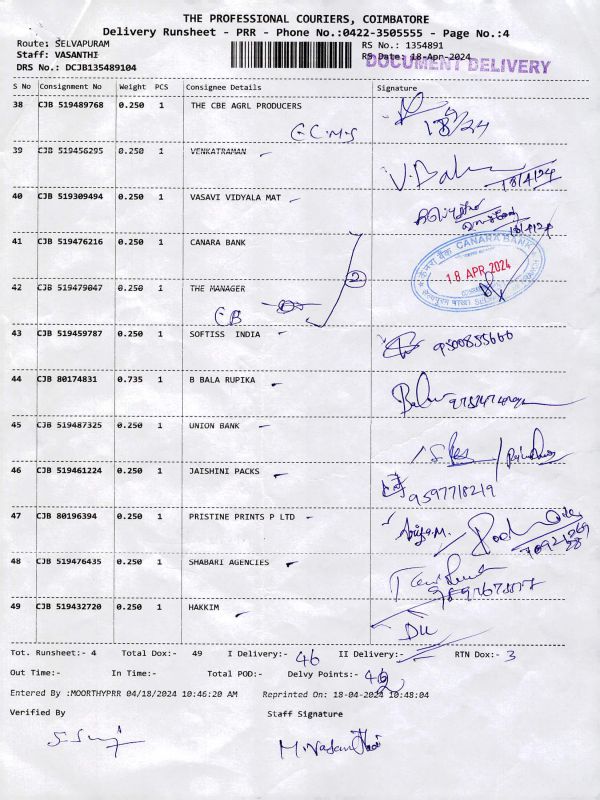 THE PROFESSIONAL COURIERS, COIMBATORE
Delivery Runsheet - PRR - Phone No.:0422-3505555 - Page No.:4
Route: SELVAPURAM
Staff: VASANTHI
DRS No.: DCJB135489104
RS No.: 1354891
RS Date: 18-Apr-2024
DOCUMENT DELIVERY
S No Consignment No Weight PCS Consignee Details Signature
38 CJB 519489768 0.250 1 THE CBE AGRL PRODUCERS
39 CJB 519456295 0.250 1 VENKATRAMAN
18/4/24
40 CJB 519309494 0.250 1 VASAVI VIDYALA MAT
18/4/24
41 CJB 519476216 0.250 1 CANARA BANK
CANARA BANK
18 APR 2024
2
42 CJB 519479047 0.250 1 THE MANAGER
CB
43 CJB 519459787 0.250 1 SOFTISS INDIA
9500855666
44 CJB 80174831 0.735 1 B BALA RUPIKA
45 CJB 519487325 0.250 1 UNION BANK
46 CJB 519461224 0.250 1 JAISHINI PACKS
9597718219
47 CJB 80196394 0.250 1 PRISTINE PRINTS P LTD
48 CJB 519476435 0.250 1 SHABARI AGENCIES
49 CJB 519432720 0.250 1 HAKKIM
DL
Tot. Runsheet:- 4 Total Dox:- 49 I Delivery:- 46 II Delivery:- RTN Dox:- 3
Out Time:- In Time:- Total POD:- Delvy Points:- 42
Entered By :MOORTHYPRR 04/18/2024 10:46:20 AM Reprinted On: 18-04-2024 10:48:04
Verified By Staff Signature